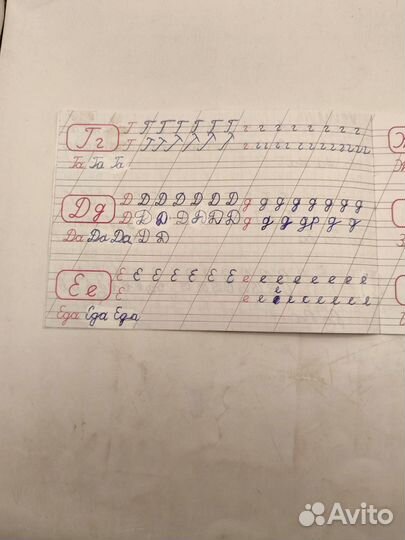 Г Г Г Г Г Г Г г г г г г г г г
Гг
Г Г Г Г Г Г Г г г г г г г г г г г
Га Га Га
Д Д Д Д Д Д Д д д д д д д д д
Дд
Д Д Д Д Д Д Д д д д д д д д
Да Да Да Д Д
Е Е Е Е Е Е Е е е е е е е е е
Ее
Е е е е е е е е е
Еда Еда Еда
Avito